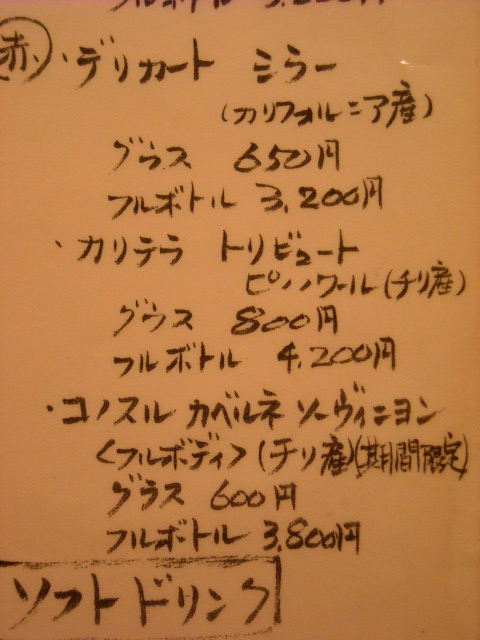 フルボトル
赤 ・デリカート ミラー
(カリフォルニア産)
グラス 650円
フルボトル 3,200円
・カリテラ トリビュート
ピノノワール(チリ産)
グラス 800円
フルボトル 4,200円
・コノスル カベルネ ソーヴィニヨン
<フルボディ>(チリ産)(期間限定)
グラス 600円
フルボトル 3,800円
ソフトドリンク